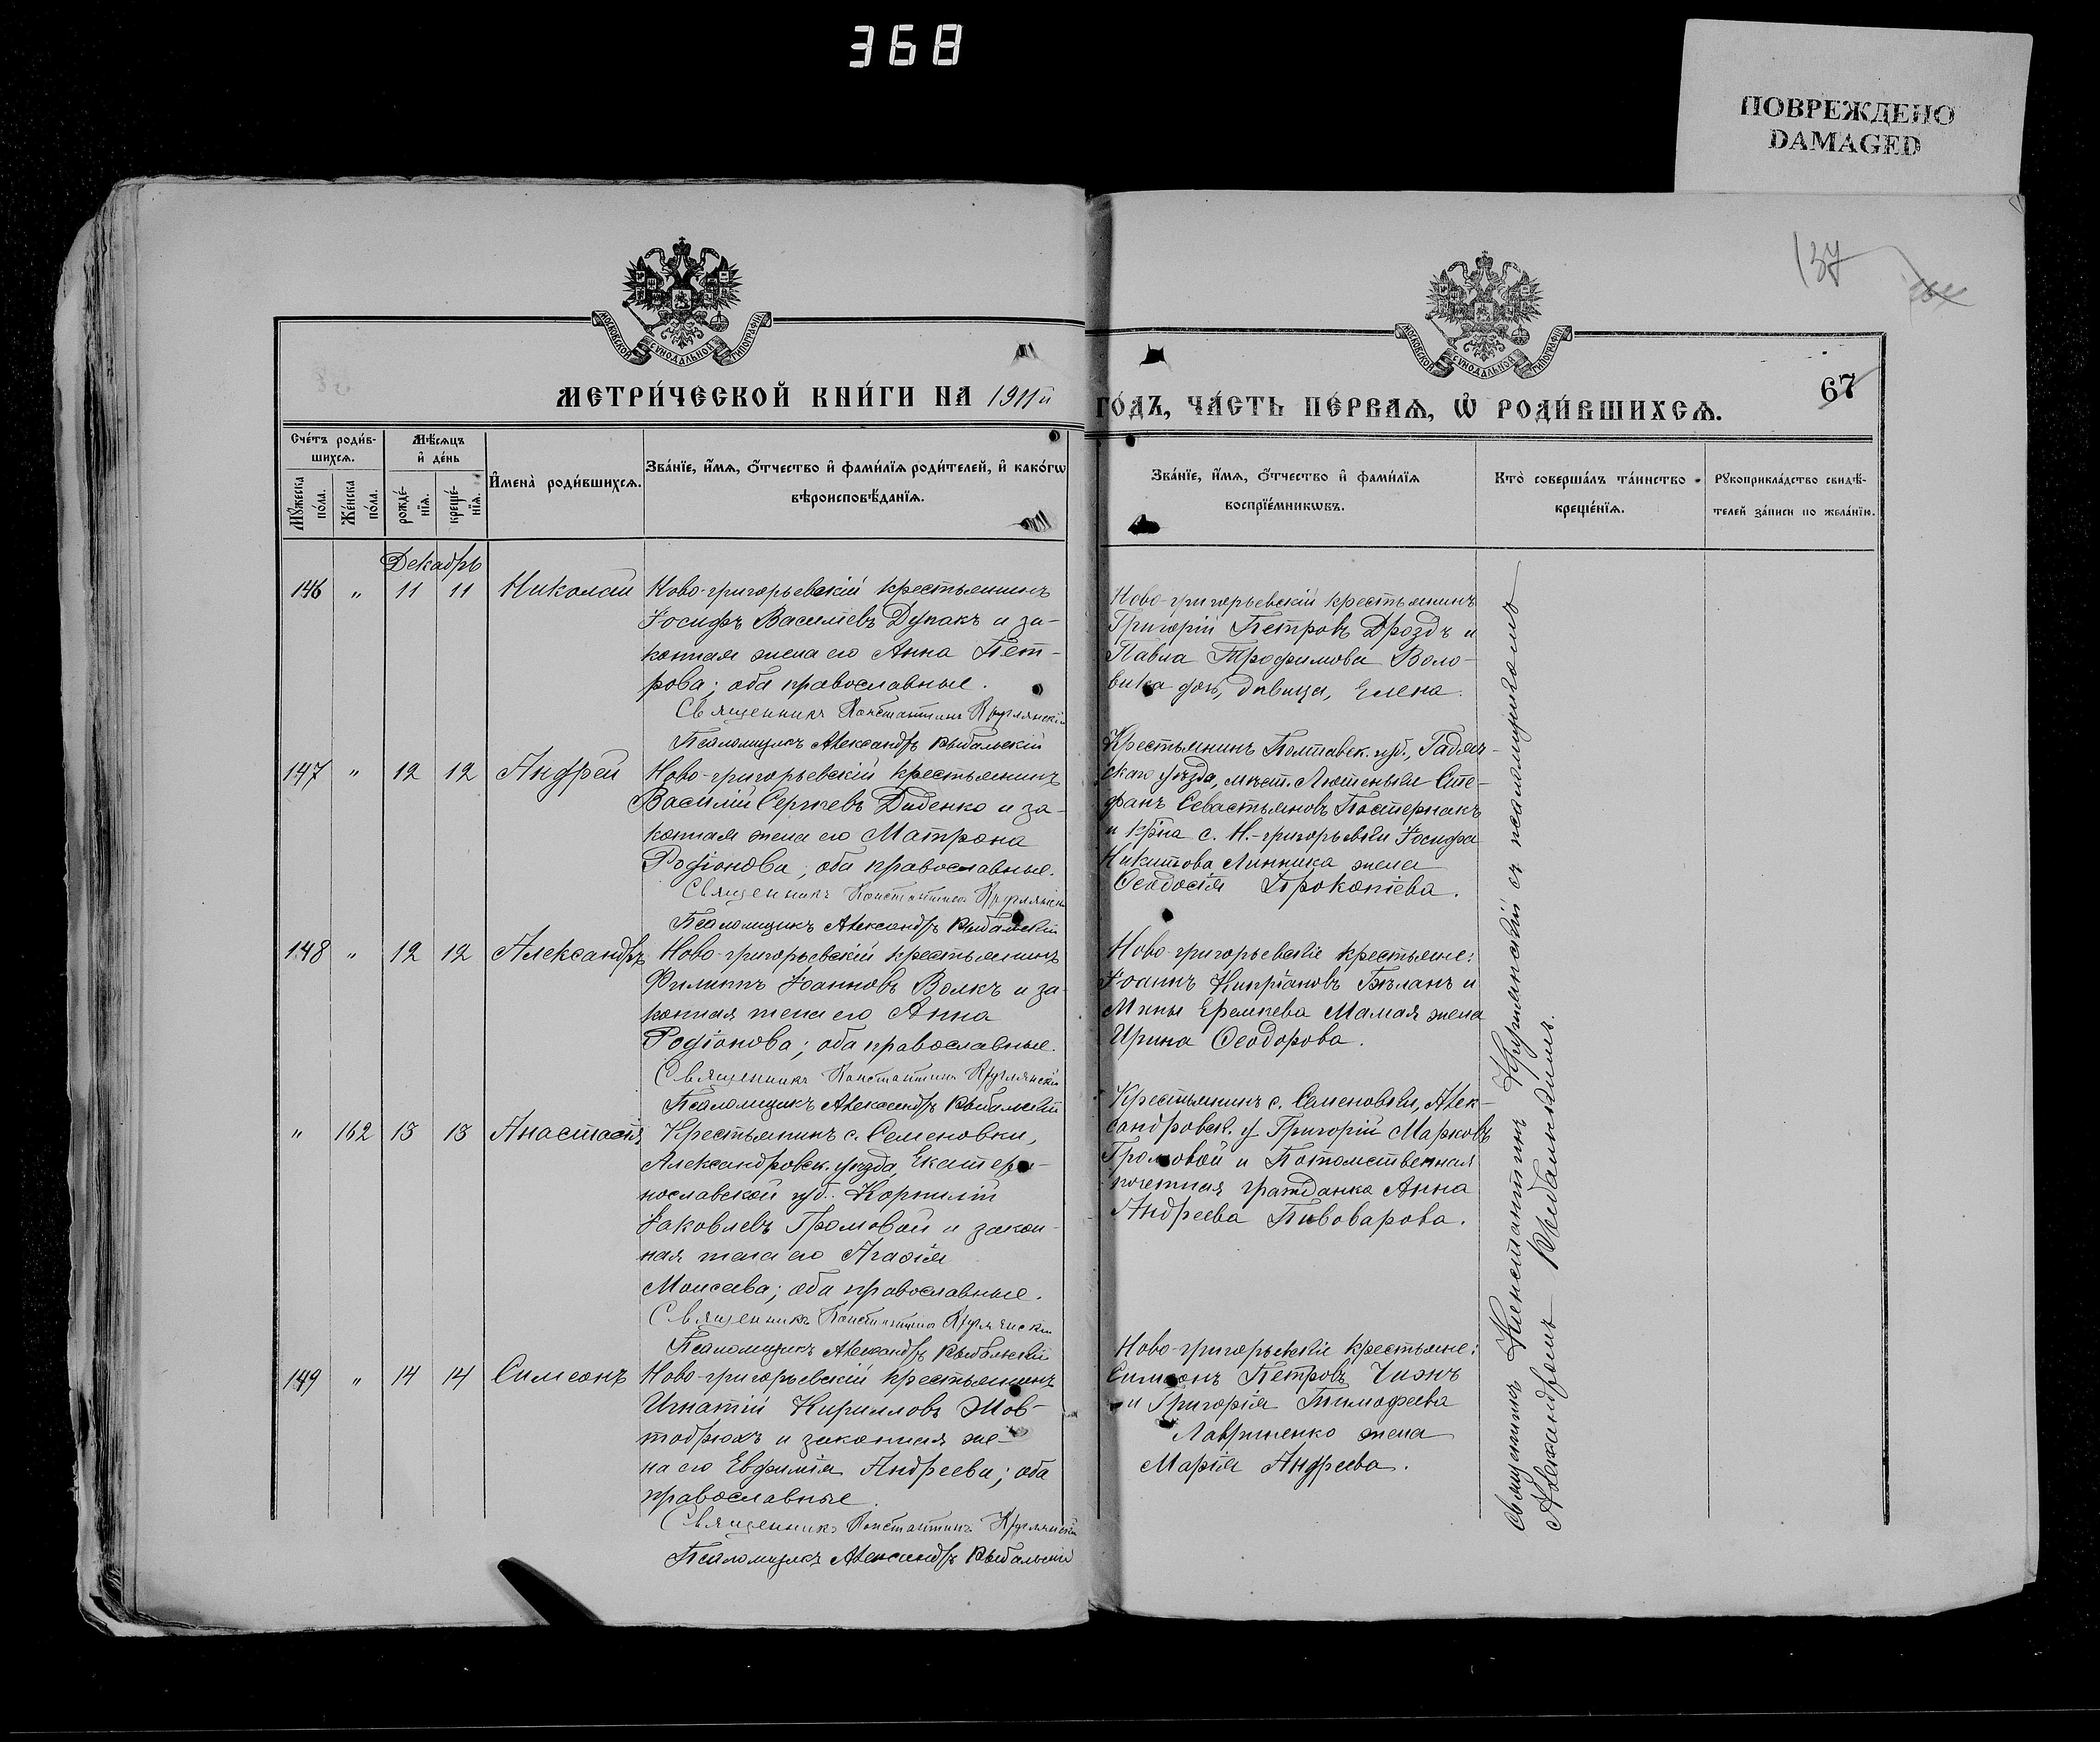 368
ПОВРЕЖДЕНО
DAMAGED
137
67
МОСКОВСКОЙ СѴНОДАЛЬНОЙ ТИПОГРАФІИ
МОСКОВСКОЙ СѴНОДАЛЬНОЙ ТИПОГРАФІИ
МЕТРИ́ЧЕСКОЙ КНИ́ГИ НА 1911й
ГО́ДЪ, ЧА́СТЬ ПЕ́РВАѦ, Ѡ РОДИ́ВШИХСѦ.
Сче́тъ роди́в-
шихсѧ.
Мꙋжеска по́ла.
Же́нска по́ла.
Мѣ́сѧцъ
и҆ де́нь
рожде́-
нїѧ.
креще́-
нїѧ.
И҆мена̀ роди́вшихсѧ.
Зва́нїе, и҆́мѧ, ѻ҆́тчество и҆ фами́лїѧ роди́телей, и҆ како́гѡ
вѣроисповѣ́данїѧ.
Зва́нїе, и҆́мѧ, ѻ҆́тчество и҆ фами́лїѧ
воспрїе́мникѡвъ.
Кто̀ соверша́лъ та́инство
креще́нїѧ.
Рꙋкоприкла́дство свидѣ́-
телей за́писи по жела́нїю.
Декабрь
146 " 11 11 Николай Ново-григорьевскій крестьянинъ
Іосифъ Василіевъ Дупакъ и за-
конная жена его Анна Пет-
рова; оба православные.
Священникъ Константинъ Круглянскій
Псаломщикъ Александръ Рыбальскій
Ново-григорьевскій крестьянинъ
Григорій Петровъ Дроздъ и
Павла Трофимова Воло-
вика дочь, дѣвица, Елена.
147 " 12 12 Андрей Ново-григорьевскій крестьянинъ
Василій Сергѣевъ Диденко и за-
конная жена его Матрона
Родіонова; оба православные.
Священникъ Константинъ Круглянскій
Псаломщикъ Александръ Рыбальскій
Крестьянинъ Полтавск. губ., Гадяч-
скаго уѣзда, мѣст. Лютеньки Сте-
фанъ Севастьяновъ Постернакъ
и кр-на с. Н.-григорьевки Іосифа
Никитова Линника жена
Ѳеодосія Прокопіева.
148 " 12 12 Александръ Ново-григорьевскій крестьянинъ
Филиппъ Іоанновъ Волкъ и за-
конная жена его Анна
Родіонова; оба православные.
Священникъ Константинъ Круглянскій
Псаломщикъ Александръ Рыбальскій
Ново-григорьевскіе крестьяне:
Іоаннъ Кипріановъ Бѣланъ и
Мины Еремѣева Мамая жена
Ирина Ѳеодорова.
" 162 13 13 Анастасія Крестьянинъ с. Семеновки,
Александровск. уѣзда, Екатери-
нославской губ. Корнилій
Іаковлевъ Громовой и закон-
ная жена его Агафія
Моисеева; оба православные.
Священникъ Константинъ Круглянскій
Псаломщикъ Александръ Рыбальскій
Крестьянинъ с. Семеновки, Алек-
сандровск. у Григорій Марковъ
Громовой и Потомственная
почетная гражданка Анна
Андреева Пивоварова.
149 " 14 14 Симеонъ Ново-григорьевскій крестьянинъ
Игнатій Кирилловъ Жов-
тобрюхъ и законная же-
на его Евфимія Андреева; оба
православные.
Священникъ Константинъ Круглянскій
Псаломщикъ Александръ Рыбальскій
Ново-григорьевскіе крестьяне:
Симеонъ Петровъ Чижъ
и Григорія Тимофеева
Лавриненко жена
Марія Андреева.
Священникъ Константинъ Круглянскій съ псаломщикомъ
Александромъ Рыбальскимъ.